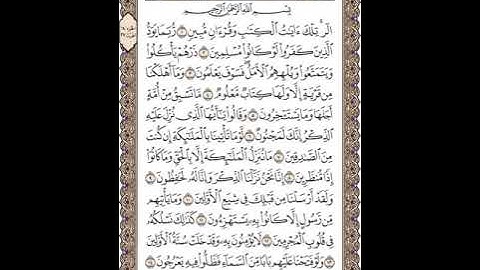 بِسْمِ ٱللَّهِ ٱلرَّحْمَٰنِ ٱلرَّحِيمِ
الٓر ۚ تِلْكَ ءَايَٰتُ ٱلْكِتَٰبِ وَقُرْءَانٍ مُّبِينٍ ١ رُّبَمَا يَوَدُّ
ٱلَّذِينَ كَفَرُوا۟ لَوْ كَانُوا۟ مُسْلِمِينَ ٢ ذَرْهُمْ يَأْكُلُوا۟
وَيَتَمَتَّعُوا۟ وَيُلْهِهِمُ ٱلْأَمَلُ ۖ فَسَوْفَ يَعْلَمُونَ ٣ وَمَآ أَهْلَكْنَا
مِن قَرْيَةٍ إِلَّا وَلَهَا كِتَابٌ مَّعْلُومٌ ٤ مَّا تَسْبِقُ مِنْ أُمَّةٍ
أَجَلَهَا وَمَا يَسْتَـْٔخِرُونَ ٥ وَقَالُوا۟ يَٰٓأَيُّهَا ٱلَّذِى نُزِّلَ عَلَيْهِ
ٱلذِّكْرُ إِنَّكَ لَمَجْنُونٌ ٦ لَّوْ مَا تَأْتِينَا بِٱلْمَلَٰٓئِكَةِ إِن كُنتَ
مِنَ ٱلصَّٰدِقِينَ ٧ مَا نُنَزِّلُ ٱلْمَلَٰٓئِكَةَ إِلَّا بِٱلْحَقِّ وَمَا كَانُوٓا۟
إِذًا مُّنظَرِينَ ٨ إِنَّا نَحْنُ نَزَّلْنَا ٱلذِّكْرَ وَإِنَّا لَهُۥ لَحَٰفِظُونَ ٩
وَلَقَدْ أَرْسَلْنَا مِن قَبْلِكَ فِى شِيَعِ ٱلْأَوَّلِينَ ١٠ وَمَا يَأْتِيهِم
مِّن رَّسُولٍ إِلَّا كَانُوا۟ بِهِۦ يَسْتَهْزِءُونَ ١١ كَذَٰلِكَ نَسْلُكُهُۥ
فِى قُلُوبِ ٱلْمُجْرِمِينَ ١٢ لَا يُؤْمِنُونَ بِهِۦ ۖ وَقَدْ خَلَتْ سُنَّةُ ٱلْأَوَّلِينَ
١٣ وَلَوْ فَتَحْنَا عَلَيْهِم بَابًا مِّنَ ٱلسَّمَآءِ فَظَلُّوا۟ فِيهِ يَعْرُجُونَ ١٤